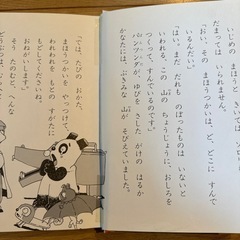 いじめの　まほうと　きいては　いては
だまっては　いられません。
「おい、その　まほうつかいは、どこに　すんで
いるんだい。」
「はい。まだ　だれも　のぼったものは　いないと
いわれる、この　山の　ちょうじょうに、おしろを
つくって、すんでいるのです。」
パンフンダが、ゆびを　さした　がけの　はるか
かなたには、ぶきみな　山が　そびえていました。
「では、たびの　おかた、
まほうつかいを　やっつけて、
われわれを　もとの　すがたに
もどしてくださいね。
おねがいします。」
そう　たのむと、へんな
どうぶつ